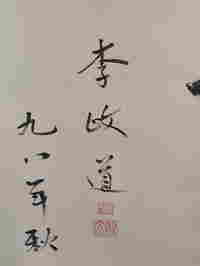 李政道
九八年秋